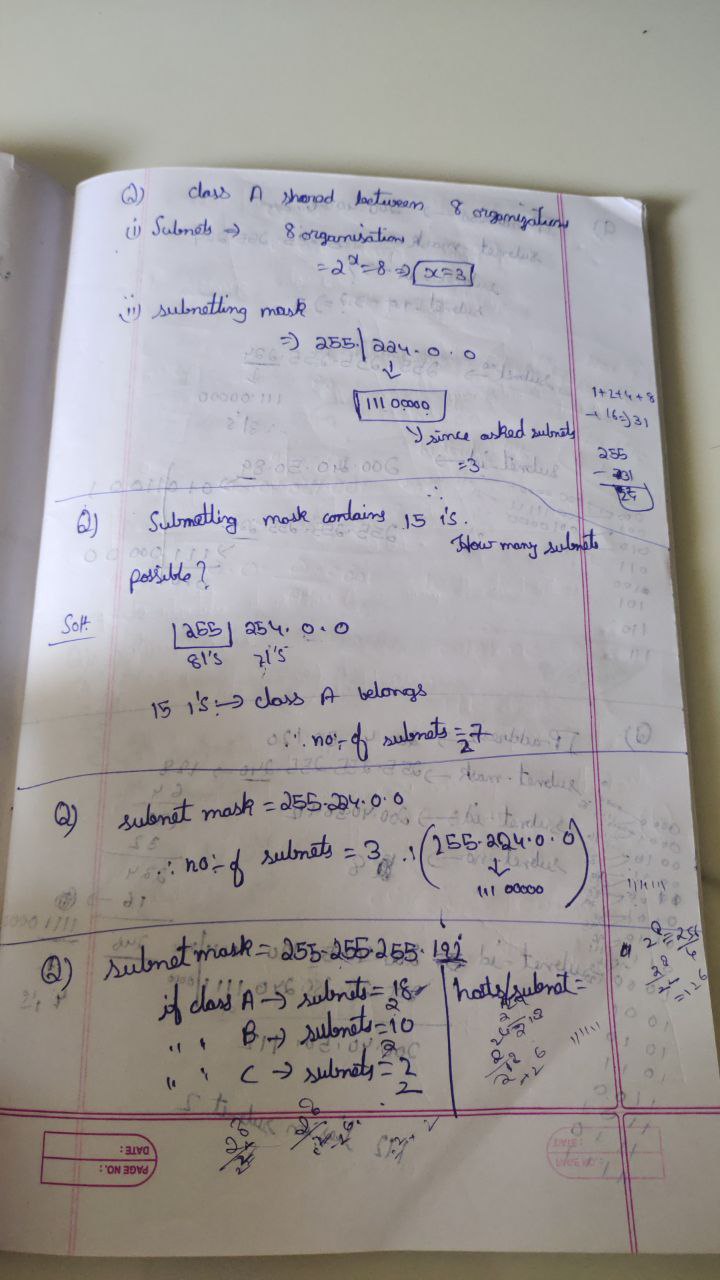 Q) class A shared between 8 organizations
(i) Subnets => 8 organisations
= 2^x = 8 => x=3
(ii) subnetting mask
=> 255.|224.0.0
↓
11100000
since asked subnets
=3
1+2+4+8
+16=>31
255
- 31
224
Q) Submetting mask contains 15 1's.
How many subnets
possible?
Soln:
255 254.0.0
8 1's 7 1's
15 1's :-> class A belongs
∴ no:-of subnets = 2^7
Q) subnet mask = 255.224.0.0
∴ no:-of subnets = 3 ∴ (255.224.0.0)
↓
111 00000
Q) subnet mask = 255.255.255.192
if class A -> subnets = 2^18
" " B -> subnets = 2^10
" " C -> subnets = 2^2
hosts/subnet =
PAGE NO.:
DATE: